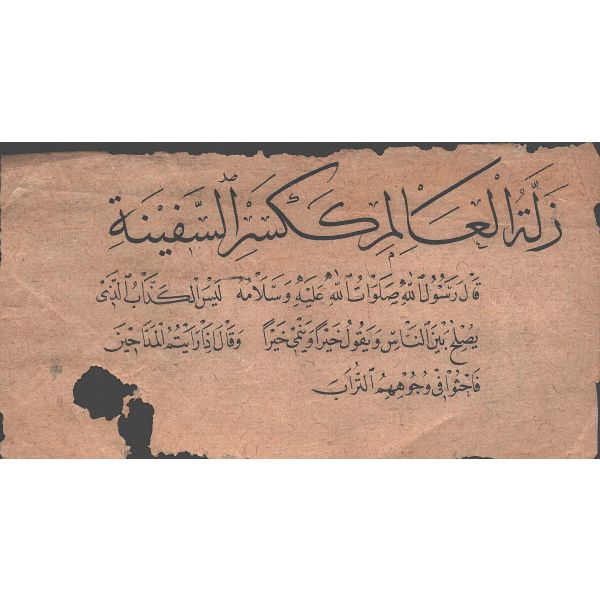 زَلَّةُ الْعَالِمِ كَكَسْرِ السَّفِينَةِ
قَالَ رَسُولُ اللهِ صَلَوَاتُ اللهِ عَلَيْهِ وَسَلَامُهُ لَيْسَ الْكَذَّابُ الَّذِي
يُصْلِحُ بَيْنَ النَّاسِ وَيَقُولُ خَيْرًا وَيَنْمِي خَيْرًا وَقَالَ إِذَا رَأَيْتُمُ الْمَدَّاحِينَ
فَاحْثُوا فِي وُجُوهِهِمُ التُّرَابَ